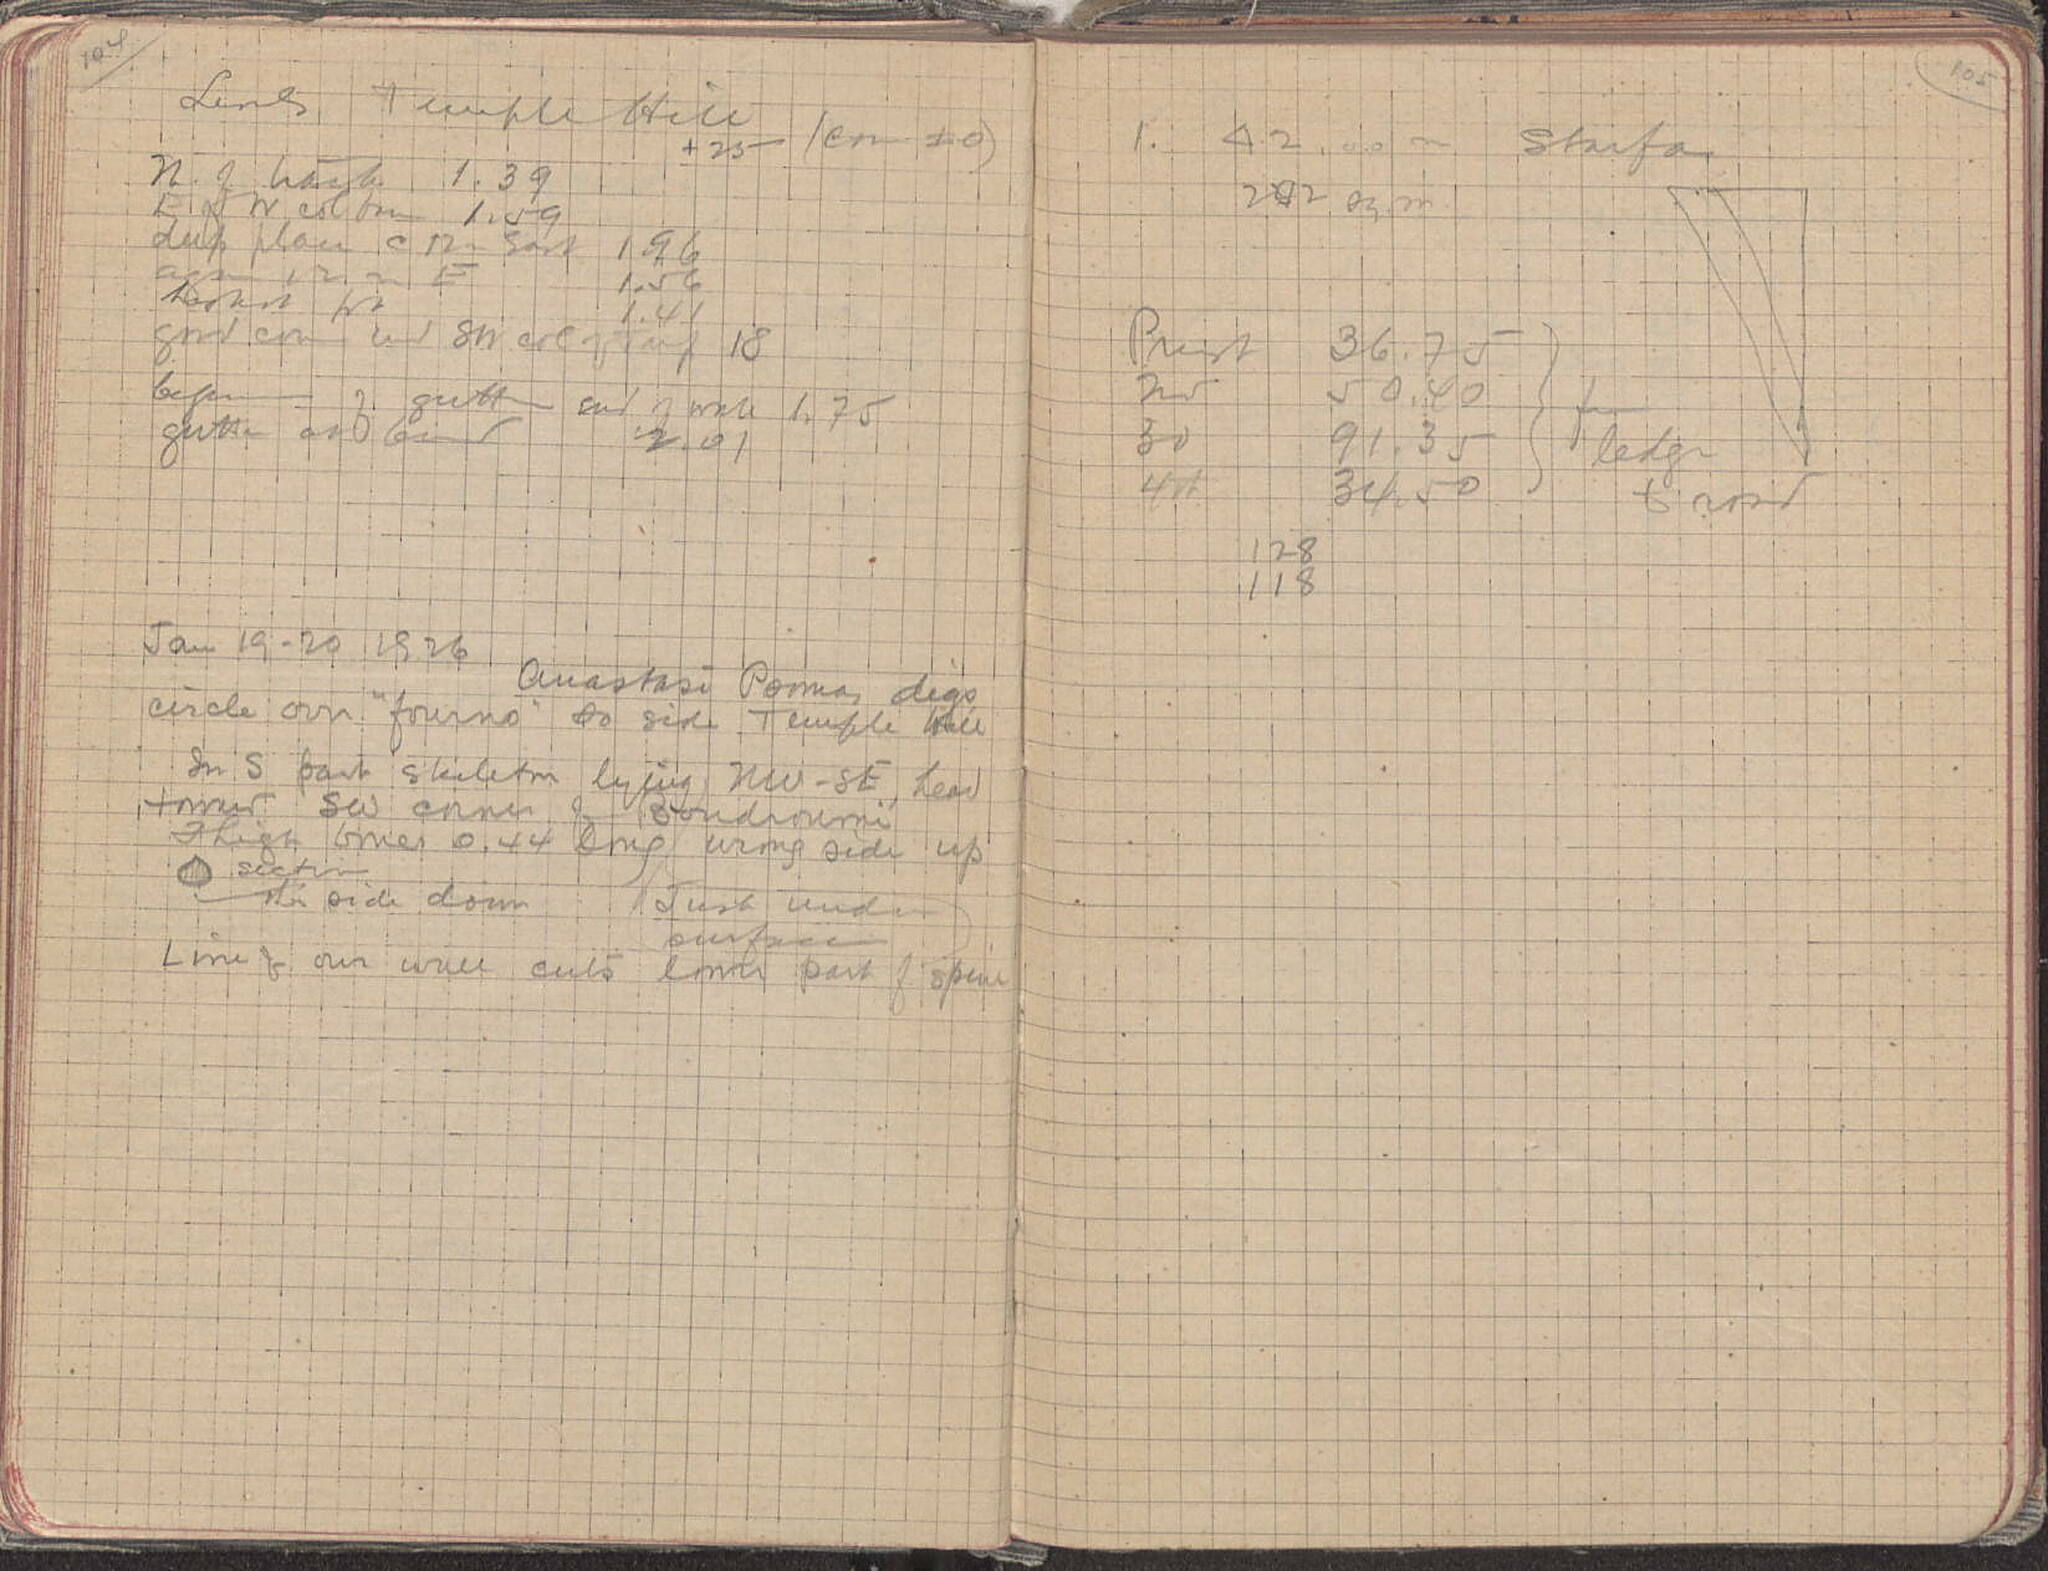 104
Levels Temple Hill
+25 (corn ± 0)
N. of 1.39
E of W col 1.59
deep place East 1.96
again E 1.56
highest pt 1.41
good corn SW col of Temp 18
of gutter end of wall 1.75
gutter at 2.01
Jan 19-20 1926
Anastasi digs
circle over "fourno" to side Temple Hill
In S part skeleton lying NW-SE, head
toward SW corner of Boudroumi
Thigh bones 0.44 long wrong side up
section
side down (Just under
surface)
Line of our wall cuts lower part of spine
105
1. 42.00 m
2 2 sq. m.
Priest 36.75
2nd 50.40 from
3d 91.35 ledge
4th 34.50 to road
128
118